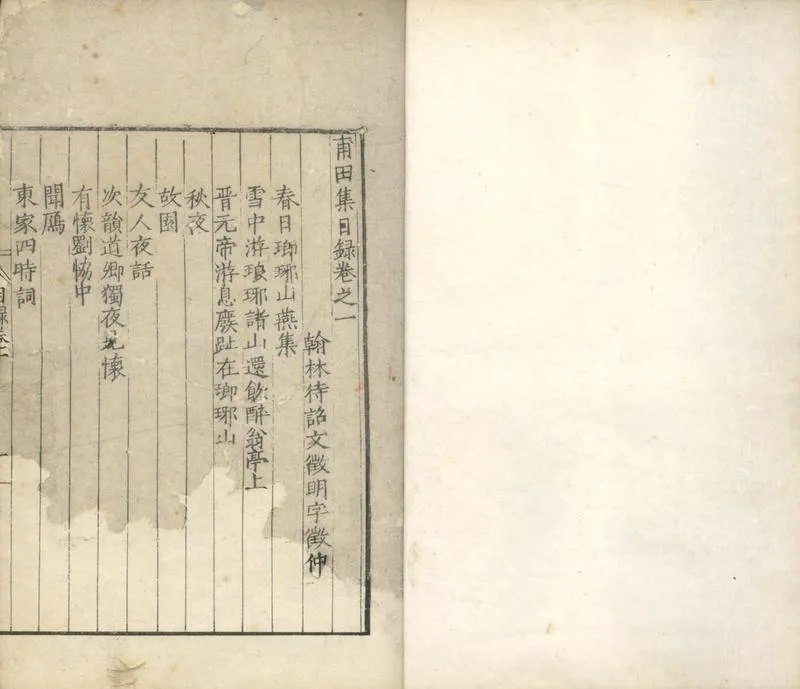 甫田集目録卷之一
翰林待詔文徵明字徵仲
春日瑯琊山燕集
雪中游瑯琊諸山還飲醉翁亭上
晋元帝游息廢趾在瑯琊山
秋夜
故園
友人夜話
次韻道卿獨夜見懷
有懷劉恊中
聞鴈
東家四時詞